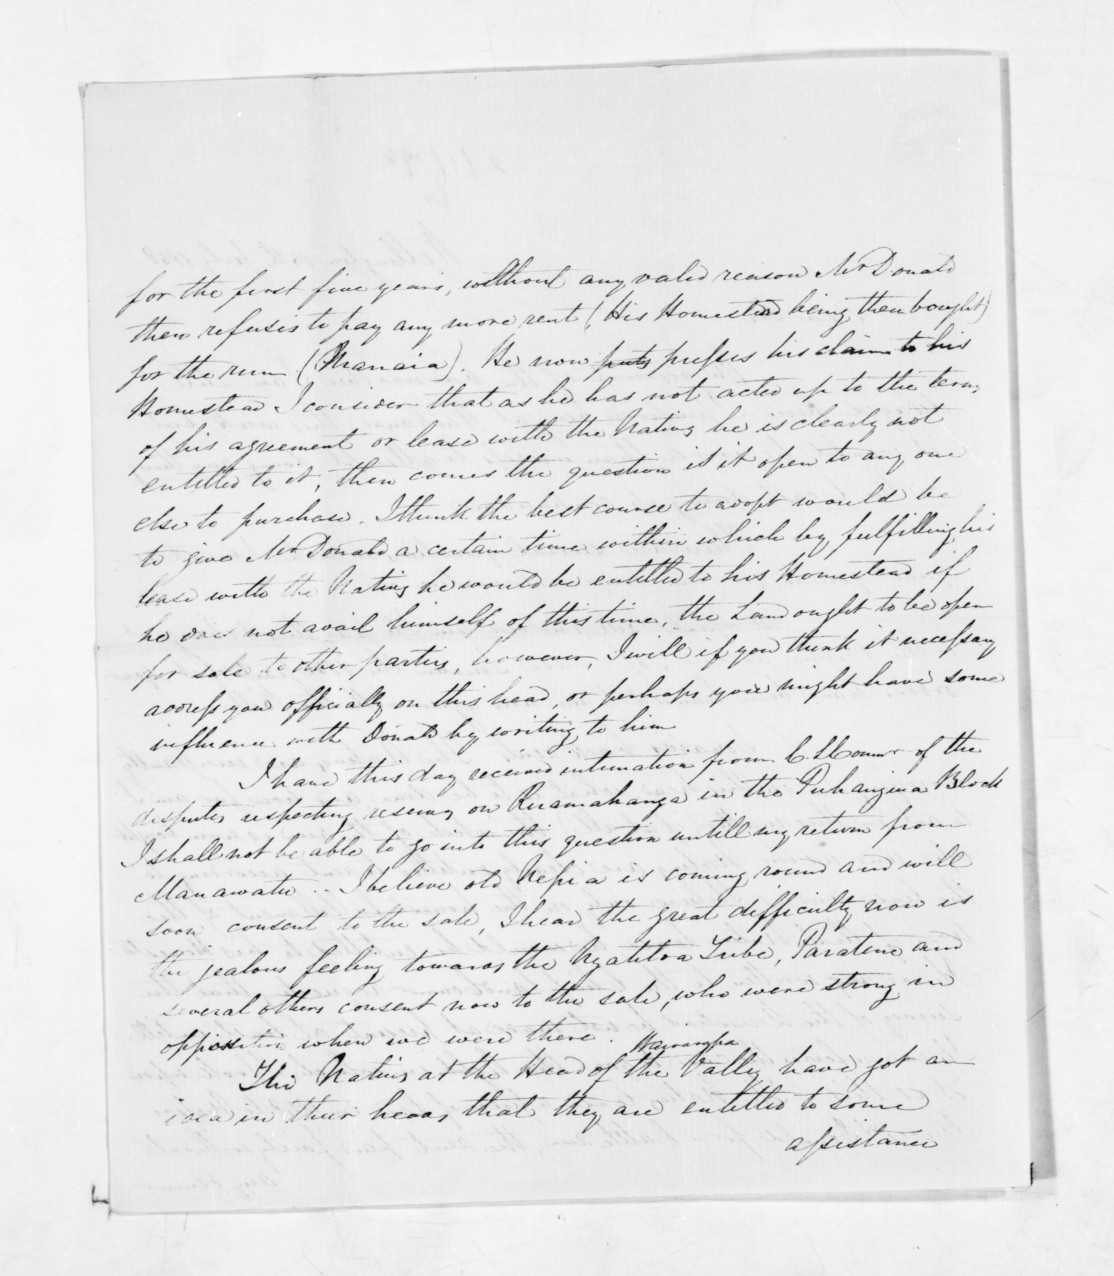 for the first five years, without any valid reason McDonald
then refuses to pay any more rent (His Homestead being then bought)
for the run (Manaia). He now puts presses his claim to his
Homestead I consider that as he has not acted up to the terms
of his agreement or lease with the Natives he is clearly not
entitled to it, then comes the question is it open to any one
else to purchase. I think the best course to adopt would be
to give McDonald a certain time within which by fulfilling his
lease with the Natives he would be entitled to his Homestead if
he does not avail himself of this time, the Land ought to be open
for sale to other parties, however, I will if you think it necessary
address you officially on this head, or perhaps you might have some
influence with Donald by writing to him
I have this day received intimation from of the
disputes respecting reserves on Ruamahanga in the Tuhangina Block
I shall not be able to go into this question untill my return from
Manawatu .. I believe old Nepia is coming round and will
soon consent to the sale, I hear the great difficulty now is
the jealous feeling towards the Ngatitoa Tribe, Paratene and
several others consent now to the sale, who were strong in
opposition when we were there.
Wairarapa
The Natives at the Head of the Valley have got an
idea in their heads that they are entitled to some
assistance